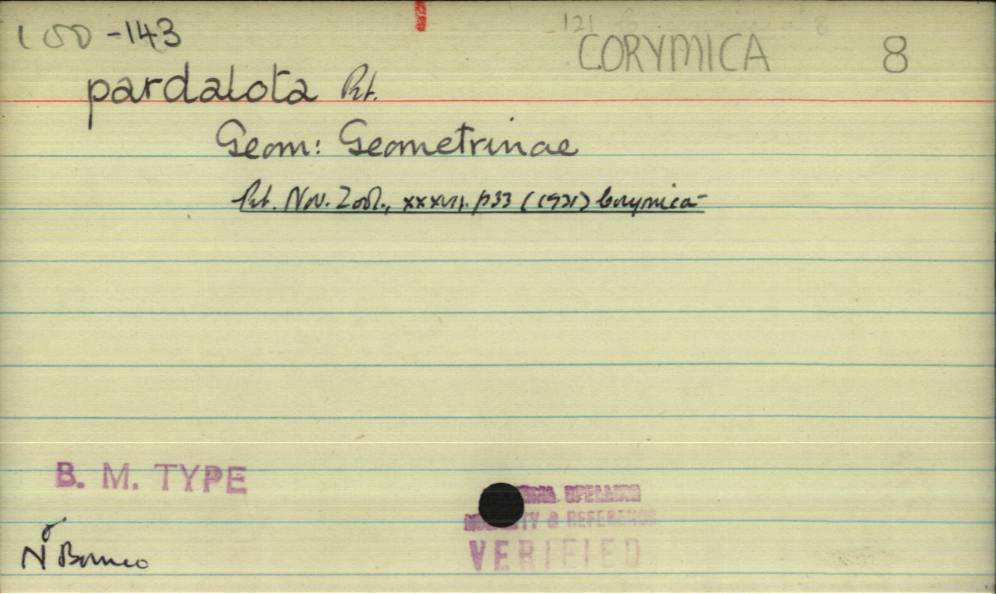 100-143
CORYMICA 8
pardalota Prt.
Geom: Geometrinae
Prt. Nov. Zool., xxxvii. p33 (1931) Corymica
B. M. TYPE
SPELLING
& REFERENCE
VERIFIED
♂
N Borneo